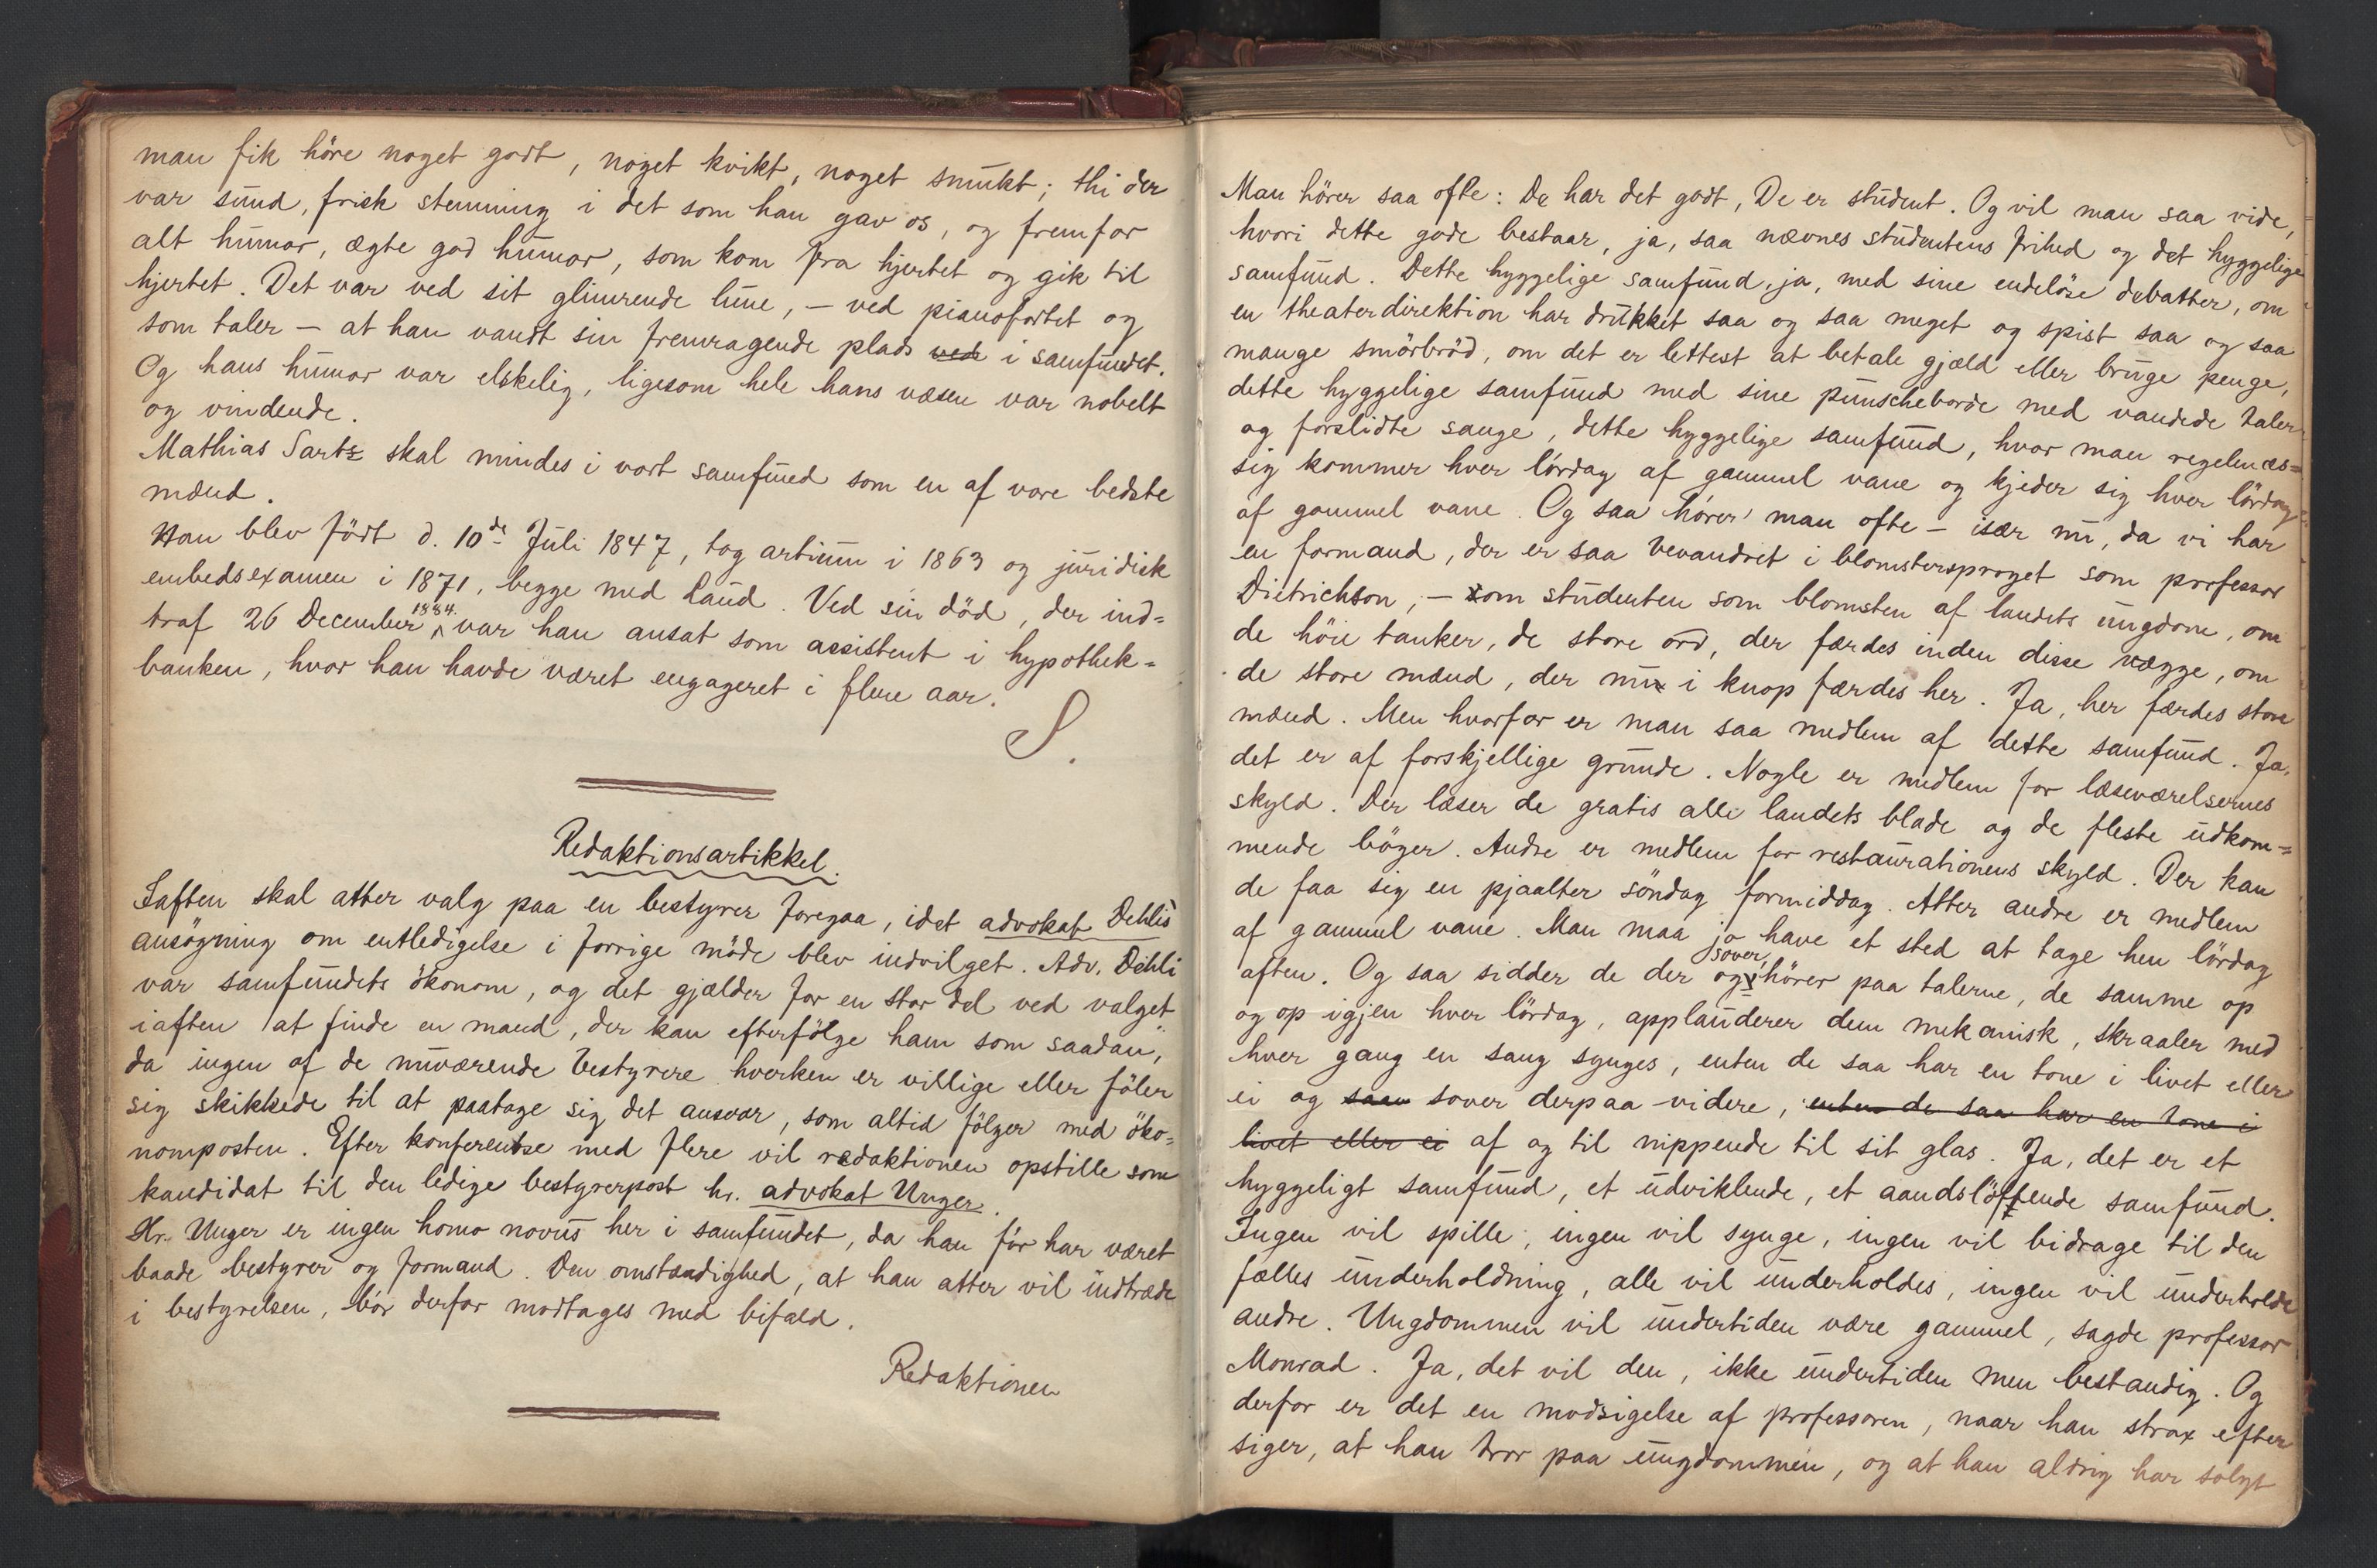 man fik høre noget godt, noget kvikt, noget smukt; thi der
var sund, frisk stemning i det som han gav os, og fremfor
alt humor, ægte god humor, som kom fra hjertet og gik til
hjertet. Det var ved sit glimrende lune, – ved pianofortet og
som taler – at han vandt sin fremragende plads ved i samfundet.
Og hans humor var elskelig, ligesom hele hans væsen var nobelt
og vindende.
Mathias Sartz skal mindes i vort samfund som en af vore bedste
mænd.
Han blev født d. 10de Juli 1847, tog artium i 1863 og juridisk
embedsexamen i 1871, begge med Laud. Ved sin död, der ind=
traf 26 December 1884. var han ansat som assistent i hypothek=
banken, hvor han havde været engageret i flere aar.
S.
Redaktionsartikkel.
Iaften skal atter valg paa en bestyrer foregaa, idet advokat Dehlis
ansøgning om entledigelse i forrige møde blev indvilget. Adv. Dehli
var samfundets økonom, og det gjælder for en stor del ved valget
iaften at finde en mand, der kan efterfølge ham som saadan,
da ingen af de nuværende bestyrere hverken er villige eller føler
sig skikkede til at paatage sig det ansvar, som altid følger med øko=
nomposten. Efter konferentse med flere vil redaktionen opstille som
kandidat til den ledige bestyrerpost hr. advokat Unger.
Hr. Unger er ingen homo novus her i samfundet, da han før har været
baade bestyrer og formand. Den omstændighed, at han atter vil indtræde
i bestyrelsen, bør derfor modtages med bifald.
Redaktionen
Man hører saa ofte: De har det godt, De er student. Og vil man saa vide,
hvori dette gode bestaar, ja, saa nævnes studentens frihed og det hyggelige
samfund. Dette hyggelige samfund, ja, med sine endeløse debatter, om
en theaterdirektion har drukket saa og saa meget og spist saa og saa
mange smørbrød, om det er lettest at betale gjæld eller bruge penge,
dette hyggelige samfund med sine punscheborde med vandede taler
og forslidte sange, dette hyggelige samfund, hvor man regelmæs=
sig kommer hver lørdag af gammel vane og kjeder sig hver lørdag
af gammel vane. Og saa hører man ofte – især nu, da vi har
en formand, der er saa bevandret i blomstersproget som professor
Dietrichson, – om studenten som blomsten af landets ungdom, om
de høie tanker, de store ord, der færdes inden disse vægge, om
de store mænd, der nu i knop færdes her. Ja, her færdes store
mænd. Men hvorfor er man saa medlem af dette samfund. Ja,
det er af forskjellige grunde. Nogle er medlem for læseværelsernes
skyld. Der læser de gratis alle landets blade og de fleste udkom=
mende bøger. Andre er medlem for restaurationens skyld. Der kan
de faa sig en pjaalter søndag formiddag. Atter andre er medlem
af gammel vane. Man maa jo have et sted at tage hen lørdag
aften. Og saa sidder de der og sover, hører paa talerne, de samme op
og op igjen hver lørdag, applauderer dem mekanisk, skraaler med
hver gang en sang synges, enten de saa har en tone i livet eller
ei og saa sover derpaa videre, enten de saa har en tone i
livet eller ei af og til nippende til sit glas. Ja, det er et
hyggeligt samfund, et udviklende, et aandsløftende samfund.
Ingen vil spille, ingen vil synge, ingen vil bidrage til den
fælles underholdning, alle vil underholdes, ingen vil underholde
andre. Ungdommen vil undertiden være gammel, sagde professor
Monrad. Ja, det vil den, ikke undertiden men bestandig. Og
derfor er det en modsigelse af professoren, naar han strax efter
siger, at han tror paa ungdommen, og at han aldrig har solgt